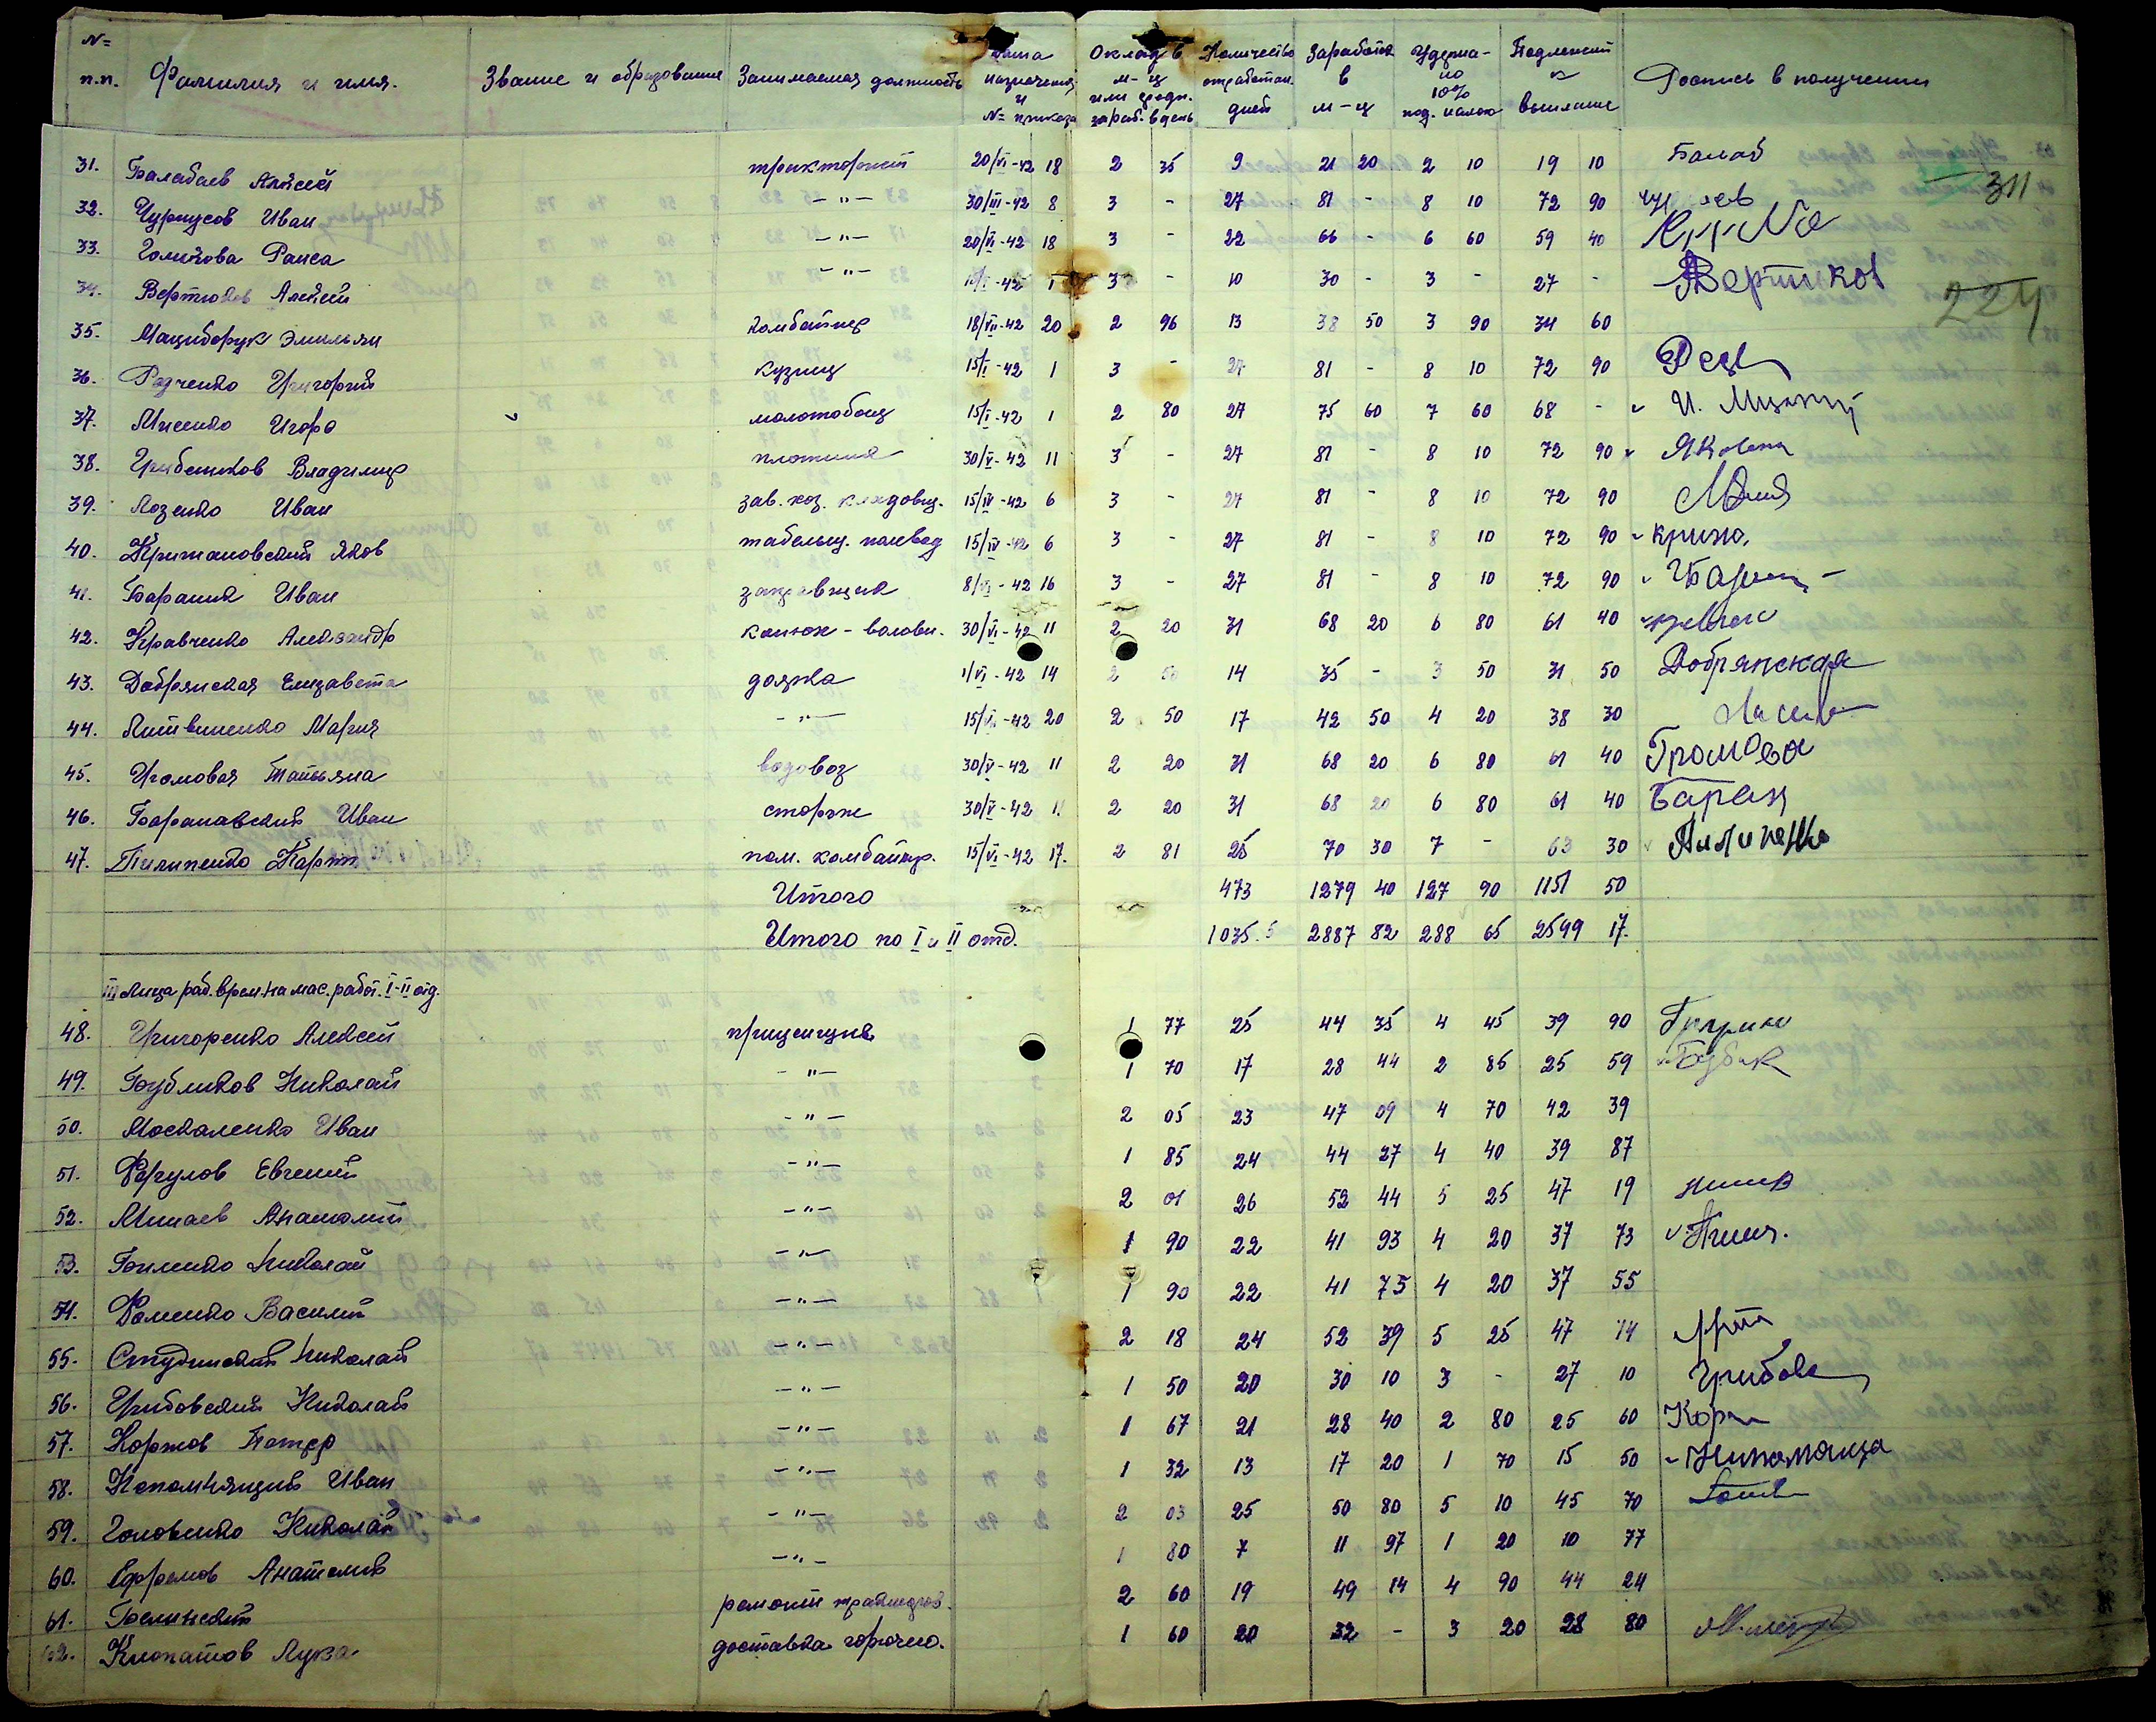 № п.п. Фамилия и имя. Звание и образование Занимаемая должность Дата назначения и № приказа Оклад в м-ц или средн. зараб. в день Количество отработан. дней Заработок в м-ц Удержано 10% под. налог Подлежит к выплате Роспись в получении
31. Балабаев Алексей тракторист 20/VI-42 18 2 35 9 21 20 2 10 19 10 Балаб
311
32. Чурпусов Иван -"- 30/III-42 8 3 - 27 81 - 8 10 72 90
33. Голикова Раиса -"- 20/VI-42 18 3 - 22 66 - 6 60 59 40
34. Вертиков Алексей -"- 15/I-42 1 3 - 10 30 - 3 - 27 - Вертиков
224
35. Мацыборук Эмильян комбайнер 18/VII-42 20 2 96 13 38 50 3 90 34 60
36. Радченко Григорий кузнец 15/I-42 1 3 - 27 81 - 8 10 72 90
37. Мисенко Игорь молотобоец 15/I-42 1 2 80 27 75 60 7 60 68 -
38. Грибенюков Владимир плотник 30/V-42 11 3 - 27 81 - 8 10 72 90
39. Лозенко Иван зав. хоз. кладовщ. 15/IV-42 6 3 - 27 81 - 8 10 72 90
40. Крижановский Яков табельщ. полевод 15/IV-42 6 3 - 27 81 - 8 10 72 90 Криж.
41. Бараник Иван заправщик 8/VI-42 16 3 - 27 81 - 8 10 72 90
42. Кравченко Александр конюх - воловн. 30/VI-42 11 2 20 31 68 20 6 80 61 40
43. Добрянская Елизавета доярка 1/VI-42 14 2 50 14 35 - 3 50 31 50 Добрянская
44. Литвиненко Мария -"- 15/VI-42 20 2 50 17 42 50 4 20 38 30
45. Громовая Татьяна водовоз 30/V-42 11 2 20 31 68 20 6 80 61 40 Громова
46. Барановский Иван сторож 30/V-42 11 2 20 31 68 20 6 80 61 40 Баран
47. Пилипенко Карп пом. комбайнер. 15/VI-42 17. 2 81 25 70 30 7 - 63 30 Пилипенко
Итого 473 1279 40 127 90 1151 50
Итого по I и II отд. 1035.5 2887 82 288 65 2599 17.
III Лица раб. врем. на мас. работ. I-II отд.
48. Григоренко Алексей прицепщик 1 77 25 44 35 4 45 39 90
49. Бубликов Николай -"- 1 70 17 28 44 2 85 25 59
50. Москаленко Иван -"- 2 05 23 47 09 4 70 42 39
51. Фергулов Евгений -"- 1 85 24 44 27 4 40 39 87
52. Минаев Анатолий -"- 2 01 26 52 44 5 25 47 19
53. Биленко Николай -"- 1 90 22 41 93 4 20 37 73
54. Фоменко Василий -"- 1 90 22 41 75 4 20 37 55
55. Студинский Николай -"- 2 18 24 52 39 5 25 47 14
56. Грибовский Николай -"- 1 50 20 30 10 3 - 27 10 Грибов
57. Коржов Петер -"- 1 67 21 28 40 2 80 25 60 Корж
58. Непомнящий Иван -"- 1 32 13 17 20 1 70 15 50
59. Головенко Николай -"- 2 03 25 50 80 5 10 45 70
60. Ефремов Анатолий -"- 1 80 7 11 97 1 20 10 77
61. Белинский ремонт тракторов. 2 60 19 49 14 4 90 44 24
62. Клопатов Лука доставка горючего. 1 60 20 32 - 3 20 28 80